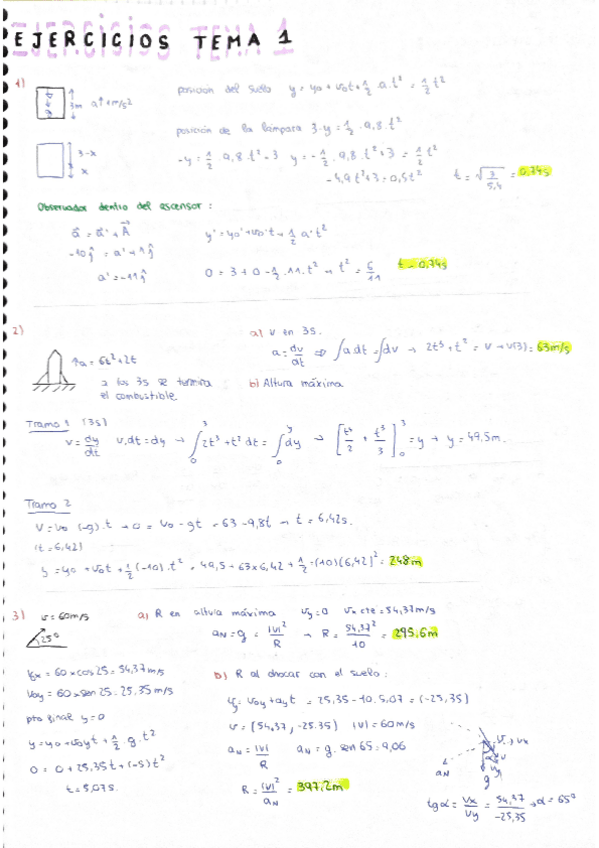 EJERCICIOS TEMA 1
1)
3m a↑ 1m/s²
posición del suelo y = y0 + v0t + 1/2 · a · t² = 1/2 t²
posición de la lámpara 3-y = 1/2 · 9,8 · t²
3-x
x
-y = 1/2 · 9,8 · t² - 3 y = -1/2 · 9,8 · t² + 3 = 1/2 t²
-4,9t² + 3 = 0,5t² t = √(3/5,4) = 0,74s
Observador dentro del ascensor:
a = a' + A y' = y0' + v0't + 1/2 a't²
-10j = a' + 1j
a' = -11j 0 = 3 + 0 - 1/2 · 11 · t² → t² = 6/11 t = 0,74s
2)
↑a = 6t² + 2t
a los 3s se termina
el combustible.
a) v en 3s.
a = dv/dt ⇒ ∫a.dt = ∫dv → 2t³ + t² = v → v(3) = 63m/s
b) Altura máxima
Tramo 1 (3s)
v = dy/dt v.dt = dy → ∫2t³ + t² dt = ∫dy → [t⁴/2 + t³/3] = y → y = 49,5m.
Tramo 2
v = v0 (-g) · t → 0 = v0 - gt = 63 - 9,8t → t = 6,42s.
(t = 6,42)
y = y0 + v0t + 1/2 (-10) · t² = 49,5 + 63x6,42 + 1/2 · (10)(6,42)² = 248m
3) v = 60m/s
25º
a) R en altura máxima vy = 0 vx cte = 54,37m/s
aN = g = |v|²/R → R = 54,37²/10 = 295,6m
v0x = 60 x cos 25 = 54,37 m/s
v0y = 60 x sen 25 = 25,35 m/s
pto final y = 0
y = y0 + v0yt + 1/2 · g · t²
0 = 0 + 25,35t + (-5)t²
t = 5,07s.
b) R al chocar con el suelo:
vy = v0y + ayt = 25,35 - 10 · 5,07 = (-25,35)
v = (54,37, -25,35) |v| = 60m/s
aN = |v|/R aN = g · sen 65 = 9,06
R = |v|²/aN = 397,2m
aN g vx vy v α
tgα = vx/vy = 54,37/-25,35 → α = 65º